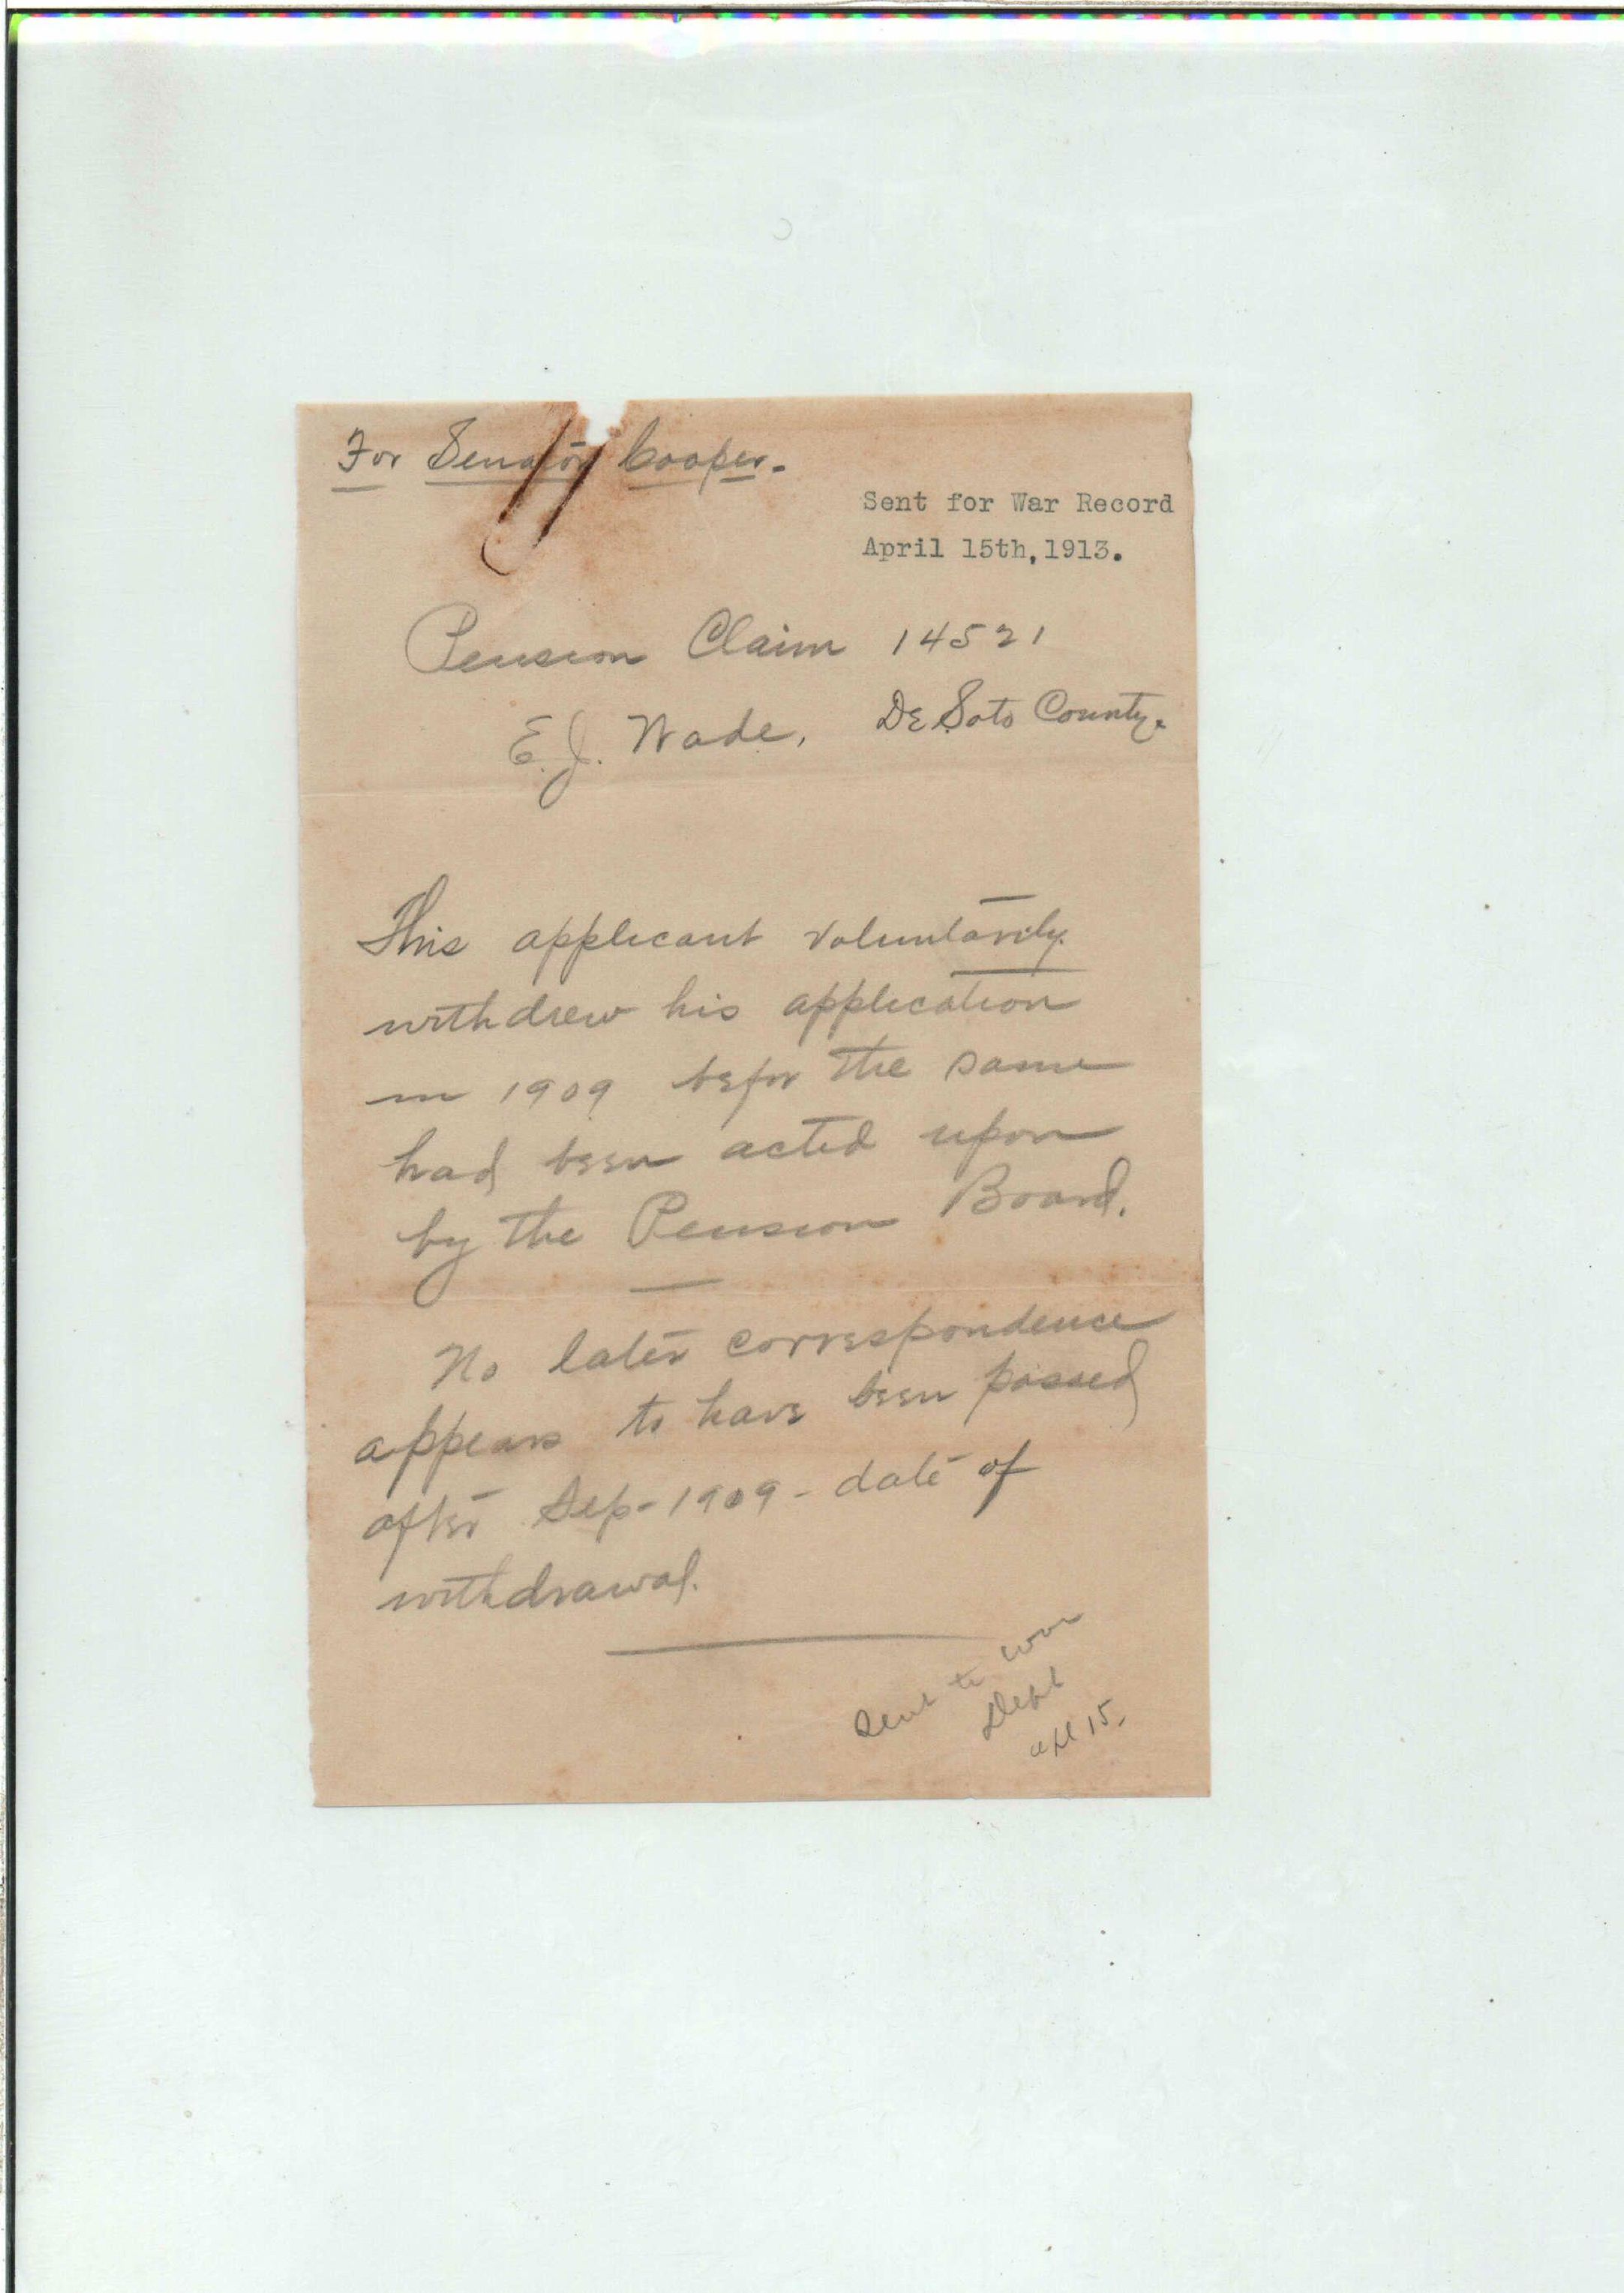 For Senator Cooper.
Sent for War Record
April 15th, 1913.
Pension Claim 14521
E. J. Wade, De Soto County.
This applicant voluntarily
withdrew his application
in 1909 befor the same
had been acted upon
by the Pension Board.
No later correspondence
appears to have been passed
after Sep - 1909 - date of
withdrawal.
Sent to War
Dept
apl 15.